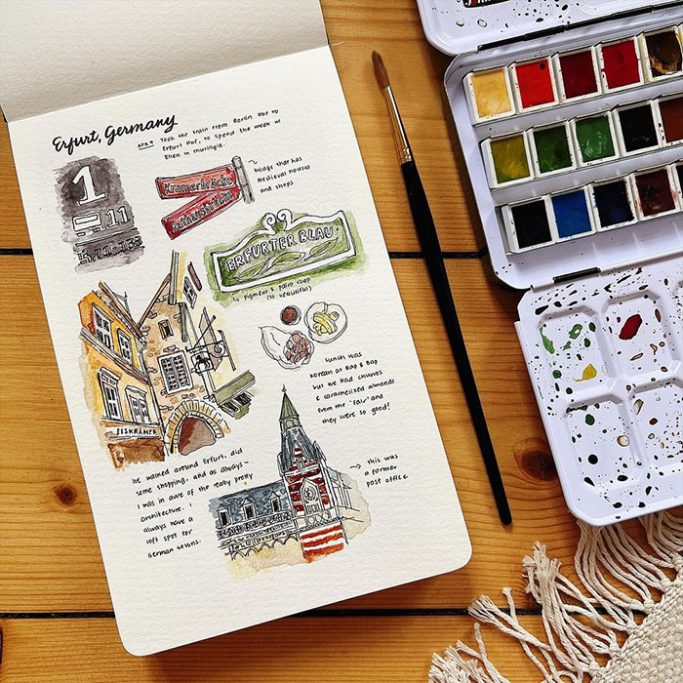 Erfurt, Germany
APR. 9 Took the train from Berlin Hbf to
Erfurt Hbf, to spend the week w/
Ellen in Thuringia.
1
11
Krämerbrücke
Rathausbrücke
bridge that has
medieval houses
and shops
ERFURTER BLAU
pigment & paint shop
(so beautiful)
Lunch was
Korean at Bap & Bap
but we had churros
& caramelised almonds
from the 'fair' and
they were so good!
EISKRÄMER
We walked around Erfurt, did
some shopping, and as always -
I was in awe of the really pretty
architecture. I
always have a
soft spot for
German towns.
this was
a former
post office